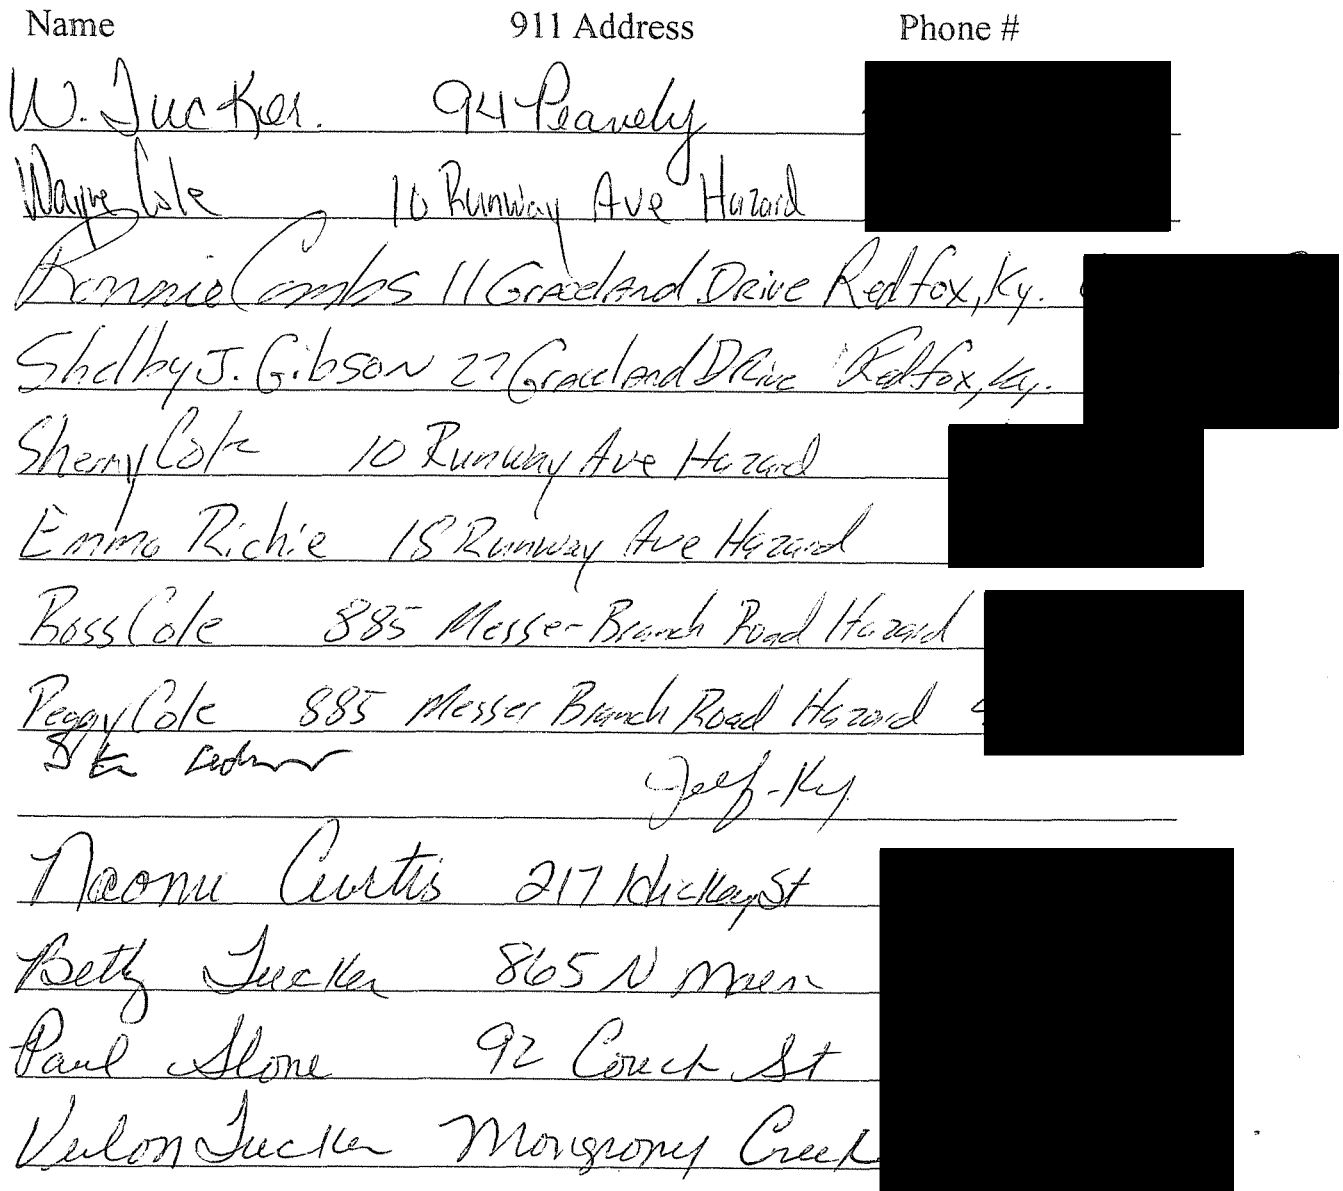 Name 911 Address Phone #
W. Tucker. 94 Peavely
Wayne Cole 10 Runway Ave Hazard
Ronnie Combs 11 Graceland Drive Redfox, Ky.
Shelby J. Gibson 27 Graceland Drive Redfox, Ky.
Sherry Cole 10 Runway Ave Hazard
Emma Richie 18 Runway Ave Hazard
Ross Cole 885 Messer Branch Road Hazard
Peggy Cole 885 Messer Branch Road Hazard
Jeff-Ky
Naomi Curtis 217 Hickey St
Betty Tucker 865 N Main
Paul Slone 92 Couch St
Tucker Creek